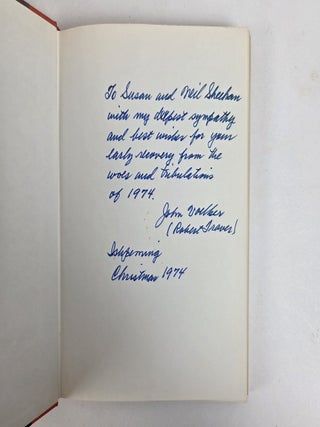 To Susan and Neil Sheehan
with my deepest sympathy
and best wishes for your
early recovery from the
woes and tribulations
of 1974.
John Voelker
(Robert Traver)
Ishpeming
Christmas 1974